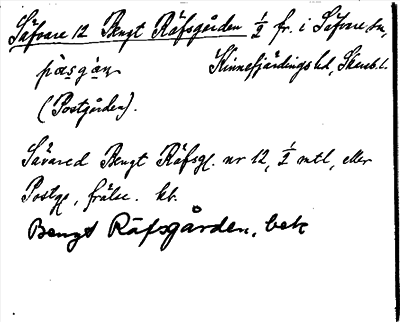 Säfvare 12 Bengt Räfsgården ½ fr. i Säfvare sn,
Kinnefjärdings hd, Skarab. l.
påsgán
(Postgården).
Sävared Bengt Räfsg. nr 12, ½ mtl, eller
Postg, frälse. kb.
Bengt Räfsgården, bek